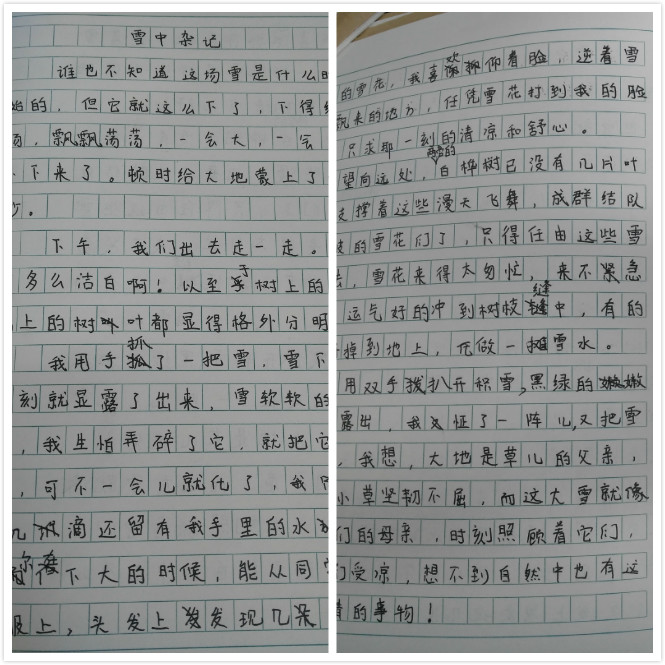 雪中杂记
谁也不知道这场雪是什么时
始的，但它就这么下了，下得纷
雨，飘飘荡荡，一会大，一会
下来了。顿时给大地蒙上了
纱。
下午，我们出去走一走。
多么洁白啊！以至于树上的
上的树叶都显得格外分明
我用手抓了一把雪，雪下
刻就显露了出来，雪软软的
，我生怕弄碎了它，就把它
，可不一会儿就化了，我
几滴还留有我手里的水
下大的时候，能从同学
服上，头发上发现几朵
的雪花，我喜欢仰着脸，逆着雪
飘来的地方，任凭雪花打到我的脸
只求那一刻的清凉和舒心。
望向远处，的白桦树已没有几片叶
支撑着这些漫天飞舞，成群结队
的雪花们了，只得任由这些雪
，雪花来得太匆忙，来不紧急
运气好的冲到树枝缝中，有的
掉到地上，化做一摊雪水。
用双手拨扒开积雪，黑绿的嫩
露出，我又怔了一阵儿，又把雪
，我想，大地是草儿的父亲，
小草坚韧不屈，而这大雪就像
们的母亲，时刻照顾着它们，
们受凉，想不到自然中也有这
的事物！